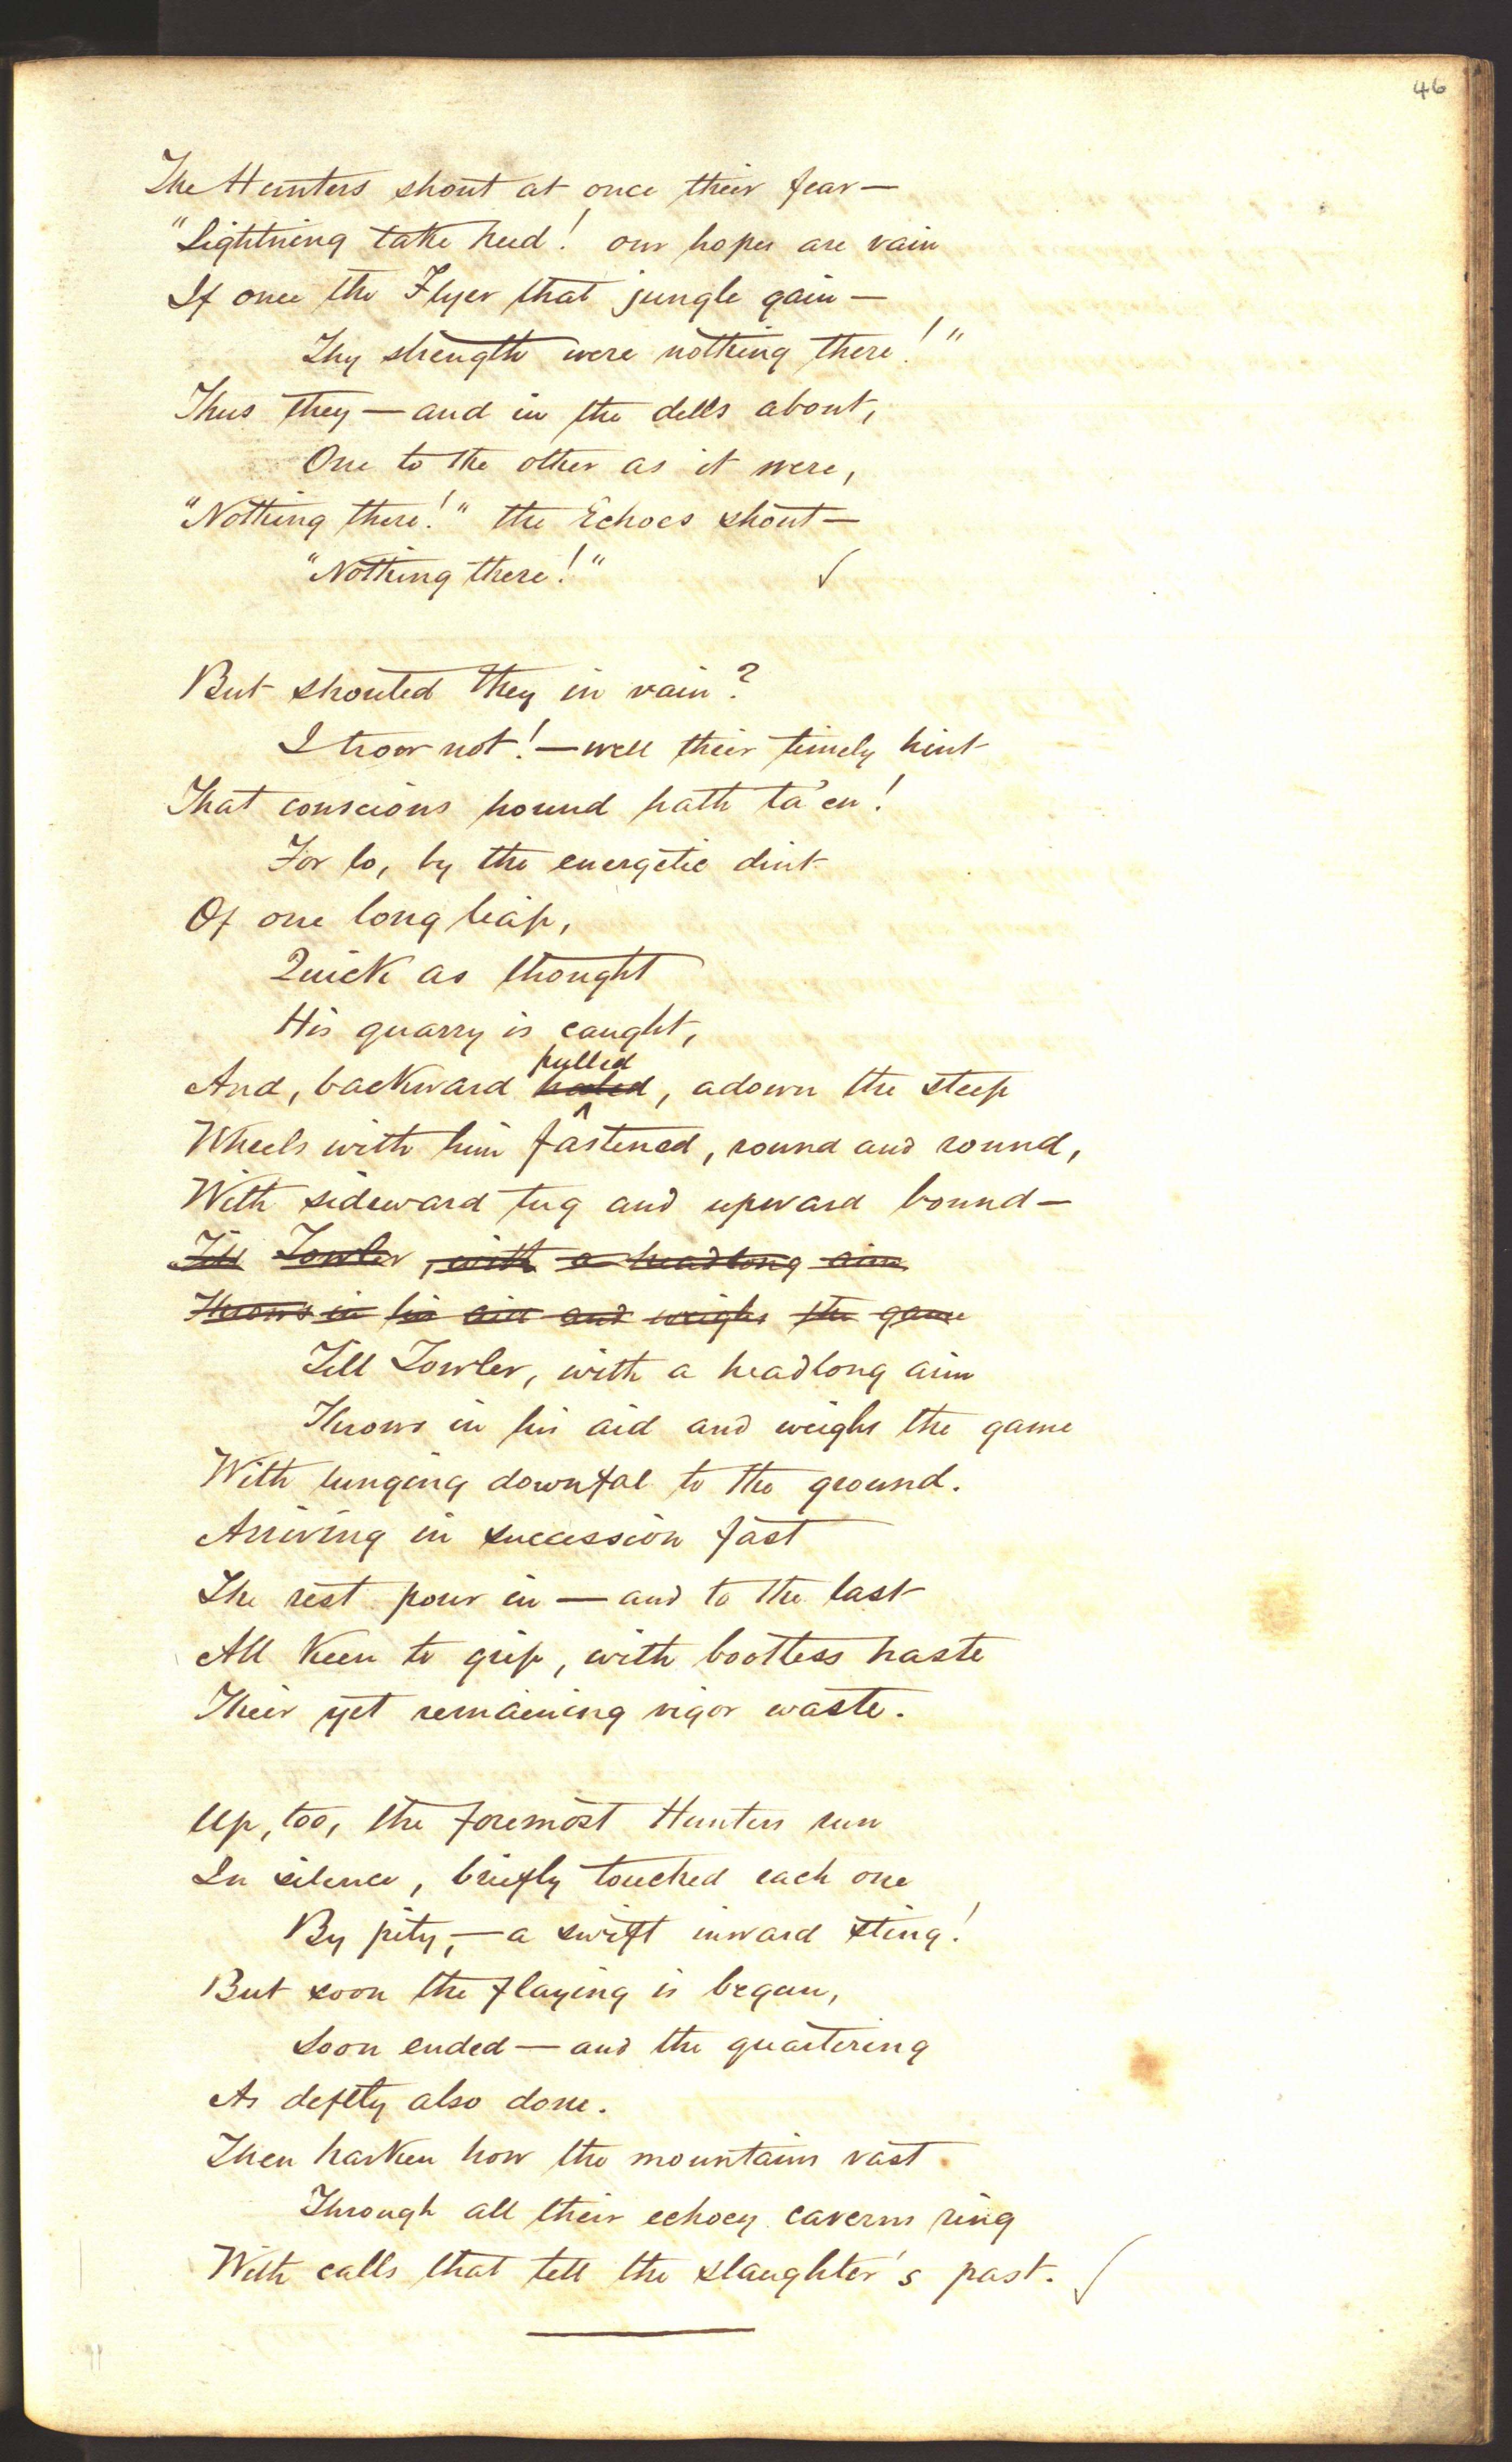 46
The Hunters shout at once their fear—
"Lightning take heed! our hopes are vain
If once the Flyer that jungle gain—
Thy strength were nothing there!"
Thus they—and in the dells about,
One to the other as it were,
"Nothing there!" the Echoes shout—
"Nothing there!" ✓
But shouted they in vain?
I trow not!—well their timely hint
That conscious hound hath ta'en!
For lo, by the energetic dint
Of one long leap,
Quick as thought
His quarry is caught,
pulled
And, backward haled, adown the steep
Wheels with him fastened, round and round,
With sideward tug and upward bound—
Till Towler, with a headlong aim
Throws in his aid and weighs the game
Till Towler, with a headlong aim
Throws in his aid and weighs the game
With lunging downfal to the ground.
Arriving in succession fast
The rest pour in—and to the last
All keen to grip, with bootless haste
Their yet remaining vigor waste.
Up, too, the foremost Hunters run
In silence, briefly touched each one
By pity,—a swift inward sting!
But soon the flaying is began,
Soon ended—and the quartering
As deftly also done.
Then harken how the mountains vast
Through all their echoey caverns ring
With calls that tell the slaughter's past. ✓